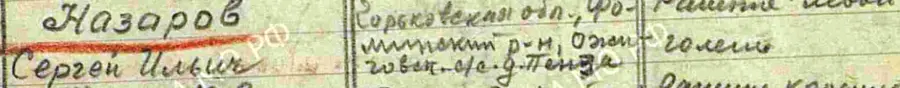 Назаров
Сергей Ильич
Горьковская обл., Фо-
минский р-н, Ожи-
говск. с/с. д. Пенза
Ранение левой
голени